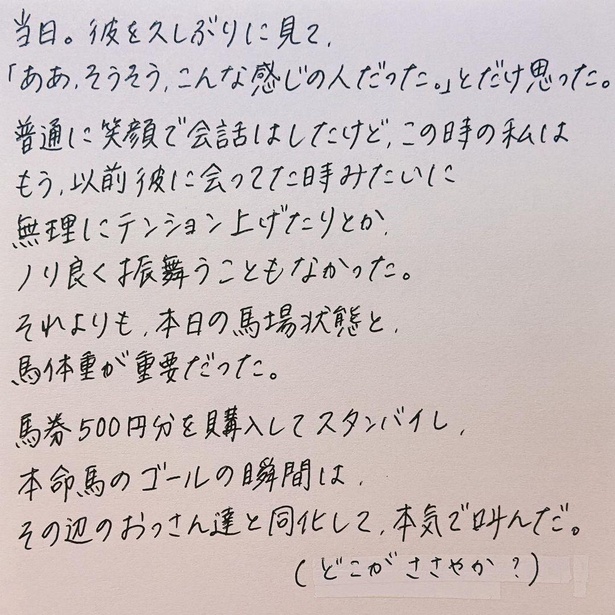 当日。彼を久しぶりに見て、
「ああ、そうそう、こんな感じの人だった。」とだけ思った。
普通に笑顔で会話はしたけど、この時の私は
もう、以前彼に会ってた時みたいに
無理にテンション上げたりとか、
ノリ良く振舞うこともなかった。
それよりも、本日の馬場状態と、
馬体重が重要だった。
馬券500円分を購入してスタンバイし、
本命馬のゴールの瞬間は、
その辺のおっさん達と同化して、本気で叫んだ。
(どこがささやか?)